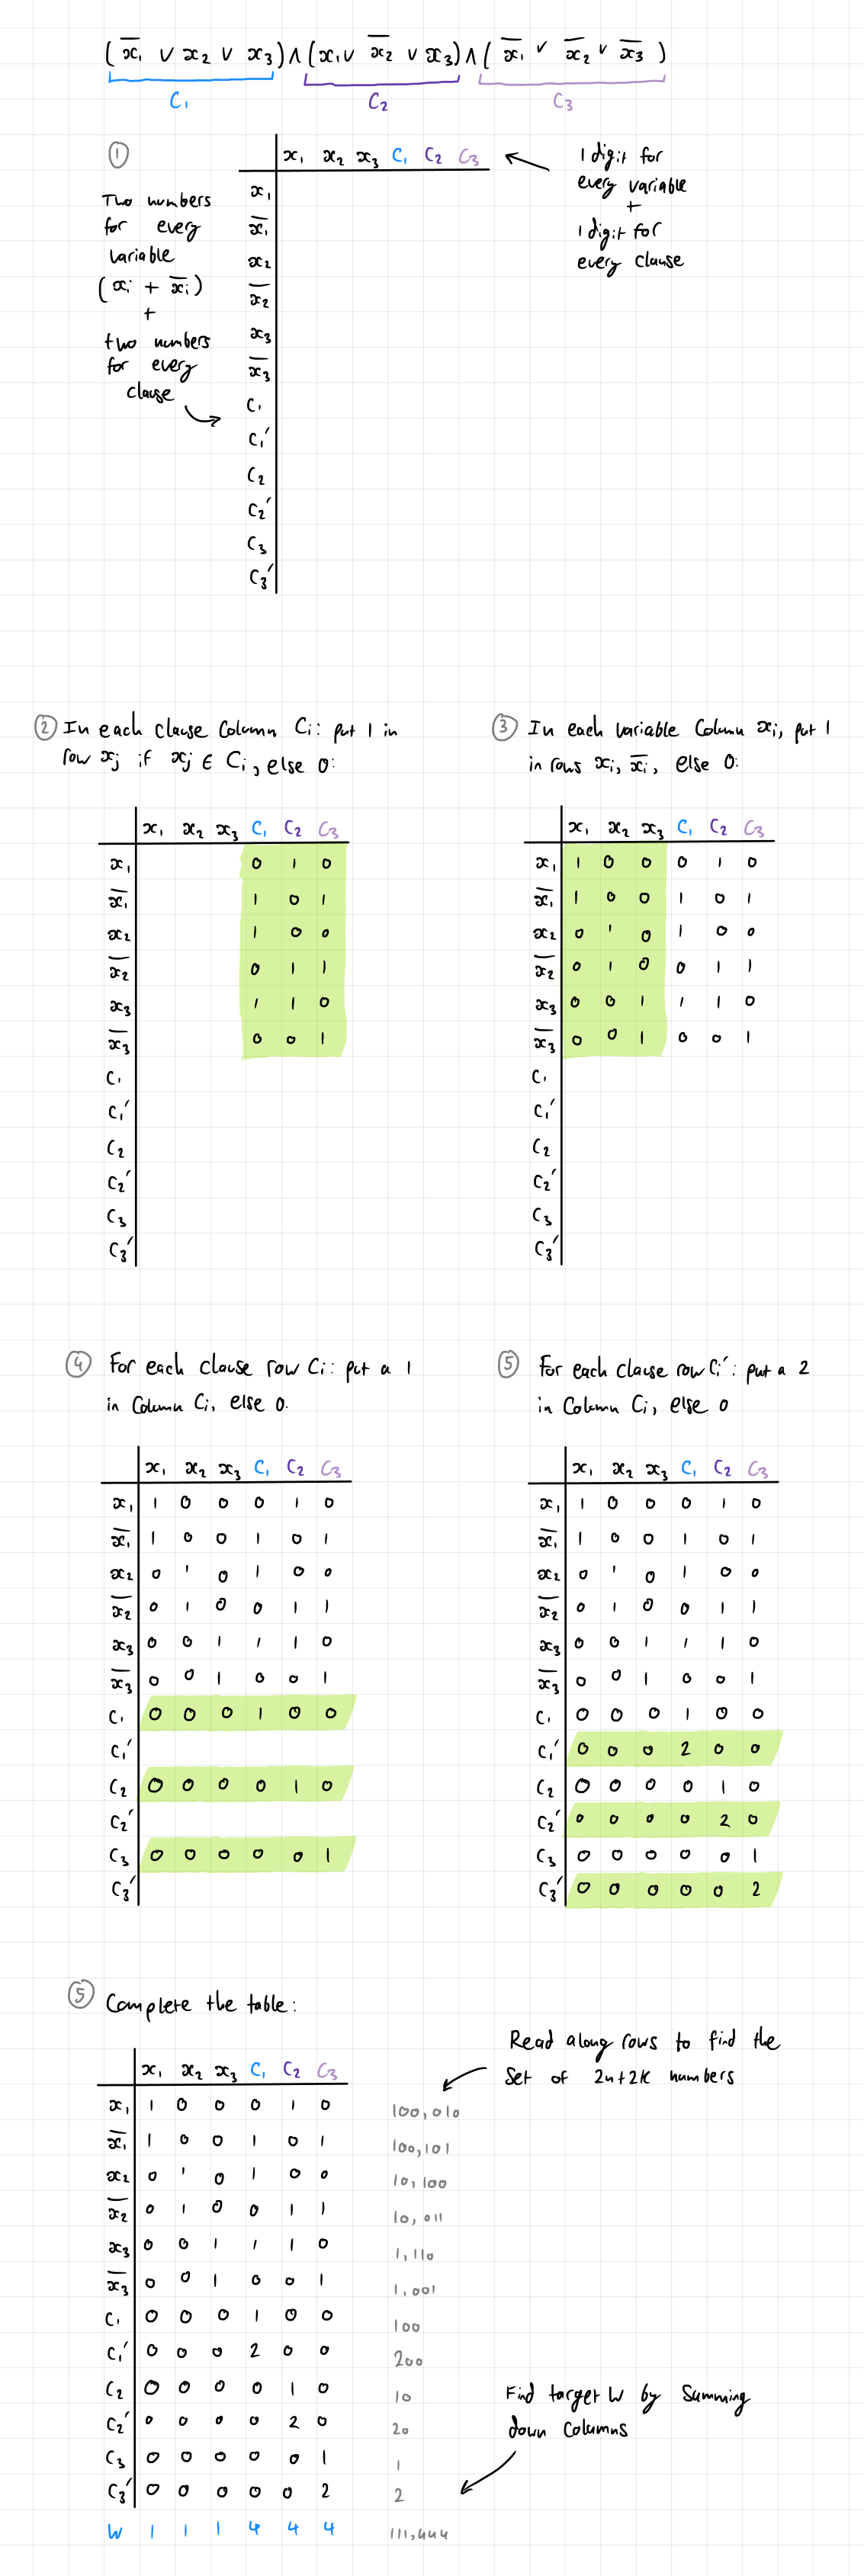 ( x̅₁ ∨ x₂ ∨ x₃ ) ∧ ( x₁ ∨ x̅₂ ∨ x₃ ) ∧ ( x̅₁ ∨ x̅₂ ∨ x̅₃ )
C₁ C₂ C₃
①
x₁ x₂ x₃ C₁ C₂ C₃
1 digit for
every variable
+
1 digit for
every clause
Two numbers
for every
variable
( xᵢ + x̅ᵢ )
+
two numbers
for every
clause
x₁
x̅₁
x₂
x̅₂
x₃
x̅₃
C₁
C₁′
C₂
C₂′
C₃
C₃′
② In each clause column Cᵢ: put 1 in
row xⱼ if xⱼ ∈ Cᵢ, else 0:
x₁ x₂ x₃ C₁ C₂ C₃
x₁ 0 1 0
x̅₁ 1 0 1
x₂ 1 0 0
x̅₂ 0 1 1
x₃ 1 1 0
x̅₃ 0 0 1
C₁
C₁′
C₂
C₂′
C₃
C₃′
③ In each variable column xᵢ, put 1
in rows xᵢ, x̅ᵢ, else 0:
x₁ x₂ x₃ C₁ C₂ C₃
x₁ 1 0 0 0 1 0
x̅₁ 1 0 0 1 0 1
x₂ 0 1 0 1 0 0
x̅₂ 0 1 0 0 1 1
x₃ 0 0 1 1 1 0
x̅₃ 0 0 1 0 0 1
C₁
C₁′
C₂
C₂′
C₃
C₃′
④ For each clause row Cᵢ: put a 1
in column Cᵢ, else 0.
x₁ x₂ x₃ C₁ C₂ C₃
x₁ 1 0 0 0 1 0
x̅₁ 1 0 0 1 0 1
x₂ 0 1 0 1 0 0
x̅₂ 0 1 0 0 1 1
x₃ 0 0 1 1 1 0
x̅₃ 0 0 1 0 0 1
C₁ 0 0 0 1 0 0
C₁′
C₂ 0 0 0 0 1 0
C₂′
C₃ 0 0 0 0 0 1
C₃′
⑤ For each clause row Cᵢ′: put a 2
in column Cᵢ, else 0
x₁ x₂ x₃ C₁ C₂ C₃
x₁ 1 0 0 0 1 0
x̅₁ 1 0 0 1 0 1
x₂ 0 1 0 1 0 0
x̅₂ 0 1 0 0 1 1
x₃ 0 0 1 1 1 0
x̅₃ 0 0 1 0 0 1
C₁ 0 0 0 1 0 0
C₁′ 0 0 0 2 0 0
C₂ 0 0 0 0 1 0
C₂′ 0 0 0 0 2 0
C₃ 0 0 0 0 0 1
C₃′ 0 0 0 0 0 2
⑤ Complete the table:
Read along rows to find the
set of 2n+2k numbers
x₁ x₂ x₃ C₁ C₂ C₃
x₁ 1 0 0 0 1 0 100,010
x̅₁ 1 0 0 1 0 1 100,101
x₂ 0 1 0 1 0 0 10,100
x̅₂ 0 1 0 0 1 1 10,011
x₃ 0 0 1 1 1 0 1,110
x̅₃ 0 0 1 0 0 1 1,001
C₁ 0 0 0 1 0 0 100
C₁′ 0 0 0 2 0 0 200
C₂ 0 0 0 0 1 0 10
C₂′ 0 0 0 0 2 0 20
C₃ 0 0 0 0 0 1 1
C₃′ 0 0 0 0 0 2 2
W 1 1 1 4 4 4 111,444
Find target W by summing
down columns